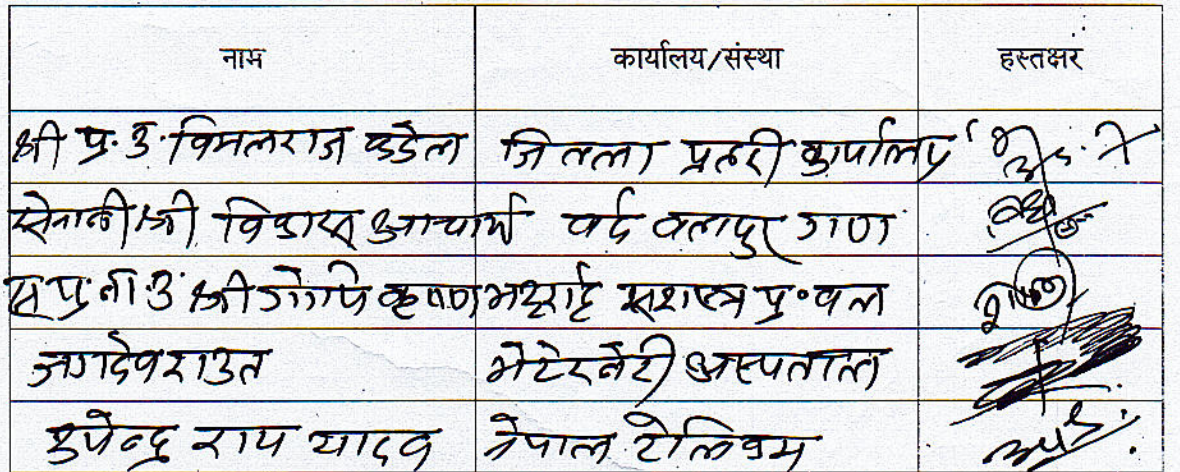 नाम कार्यालय/संस्था हस्तक्षर
श्री प्र. उ. विमलराज कडेल जिल्ला प्रहरी कार्यालय
सेनानी श्री विकास आचार्य वर्द वहादुर गण
स प्र ना उ श्री गोपि कृष्ण भट्टराई सशस्त्र प्र॰ वल
जगदेव राउत भेटेरनेरी अस्पताल
उपेन्द्र राय यादव नेपाल टेलिकम